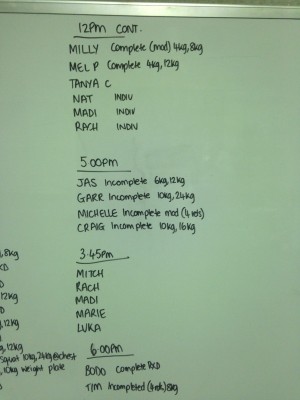 12pm CONT.
MILLY Complete (mod) 4kg, 8kg
MEL P Complete 4kg, 12kg
TANYA C
NAT INDIV
MADI INDIV
RACH INDIV
5:00pm
JAS Incomplete 6kg, 12kg
GARR Incomplete 10kg, 24kg
MICHELLE Incomplete mod (4 rds)
CRAIG Incomplete 10kg, 16kg
3.45pm
MITCH
RACH
MADI
MARIE
LUKA
6:00pm
BODO Complete RXD
TIM Incompleted 8kg
, 8kg
XD
D
12kg
D
, 12kg
g, 12kg
Squat 10kg, 24kg @ chest
, 10kg weight plate